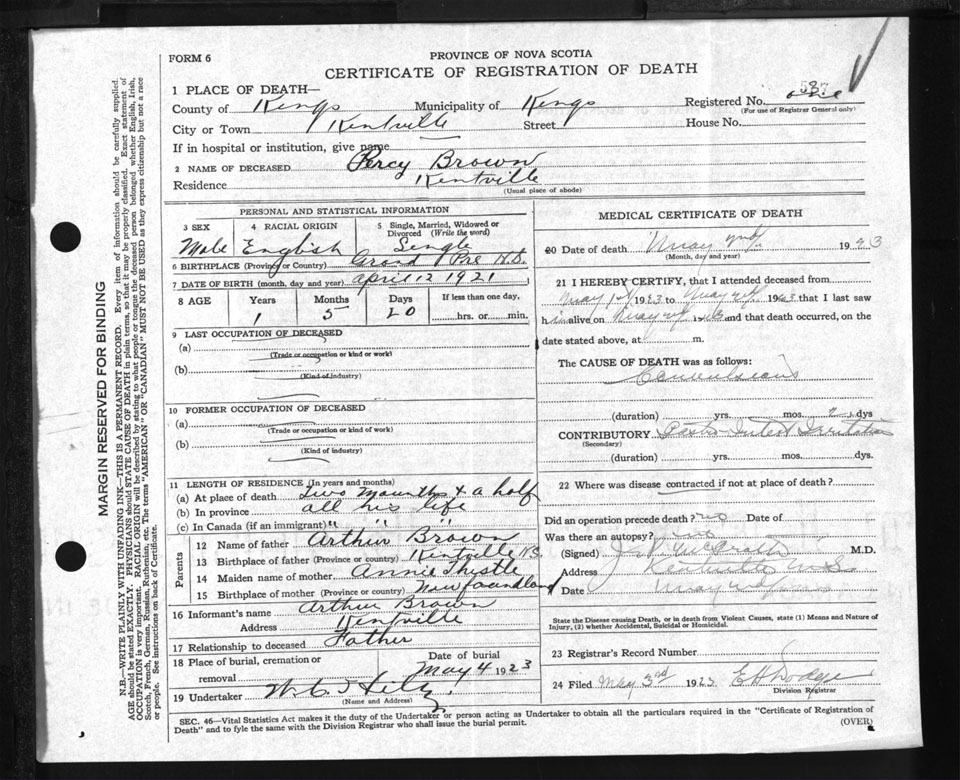 FORM 6
PROVINCE OF NOVA SCOTIA
CERTIFICATE OF REGISTRATION OF DEATH
1 PLACE OF DEATH—
County of Kings Municipality of Kings Registered No.
(For use of Registrar General only)
City or Town Kentville Street House No.
If in hospital or institution, give name
2 NAME OF DECEASED Percy Brown
Residence Kentville
(Usual place of abode)
PERSONAL AND STATISTICAL INFORMATION
3 SEX 4 RACIAL ORIGIN 5 Single, Married, Widowed or Divorced (Write the word)
Male English Single
6 BIRTHPLACE (Province or Country) Grand Pre N.S.
7 DATE OF BIRTH (month, day and year) April 12 1921
8 AGE Years Months Days If less than one day,
1 5 20 hrs. or min.
9 LAST OCCUPATION OF DECEASED
(a)
(Trade or occupation or kind or work)
(b)
(Kind of industry)
10 FORMER OCCUPATION OF DECEASED
(a)
(Trade or occupation or kind of work)
(b)
(Kind of industry)
11 LENGTH OF RESIDENCE (In years and months)
(a) At place of death two mounths & a half
(b) In province all his life
(c) In Canada (if an immigrant) " " "
Parents
12 Name of father Arthur Brown
13 Birthplace of father (Province or country) Kentville N.S.
14 Maiden name of mother Annie Thistle
15 Birthplace of mother (Province or country) Newfoundland
16 Informant's name Arthur Brown
Address Kentville
17 Relationship to deceased Father
18 Place of burial, cremation or removal Date of burial
May 4 1923
19 Undertaker
(Name and Address)
MEDICAL CERTIFICATE OF DEATH
20 Date of death May 2nd. 1923
(Month, day and year)
21 I HEREBY CERTIFY, that I attended deceased from
May 1st 1923 to May 2nd 1923 that I last saw
him alive on May 2nd 1923 and that death occurred, on the
date stated above, at m.
The CAUSE OF DEATH was as follows:
Convulsions
(duration) yrs. mos. 2 dys
CONTRIBUTORY Gastro-Intest Irritation
(Secondary)
(duration) yrs. mos. dys.
22 Where was disease contracted if not at place of death?
Did an operation precede death? no Date of
Was there an autopsy? no
(Signed) McGrath M.D.
Address Kentville N.S.
Date May 2nd
State the Disease causing Death, or in death from Violent Causes, state (1) Means and Nature of
Injury, (2) whether Accidental, Suicidal or Homicidal.
23 Registrar's Record Number
24 Filed May 3rd 1923 E H Dodge
Division Registrar
SEC. 46—Vital Statistics Act makes it the duty of the Undertaker or person acting as Undertaker to obtain all the particulars required in the "Certificate of Registration of
Death" and to fyle the same with the Division Registrar who shall issue the burial permit.
(OVER)
MARGIN RESERVED FOR BINDING
N.B.—WRITE PLAINLY WITH UNFADING INK—THIS IS A PERMANENT RECORD. Every item of information should be carefully supplied.
AGE should be stated EXACTLY. PHYSICIANS should STATE CAUSE OF DEATH in plain terms, so that it may be properly classified. Exact statement of
OCCUPATION is very important. RACIAL ORIGIN will be described by stating to what people or tongue the deceased person belonged whether English, Irish,
Scotch, French, German, Russian, Ruthenian, etc. The terms "AMERICAN" or "CANADIAN" MUST NOT BE USED as they express citizenship but not a race
or people. See instructions on back of Certificate.